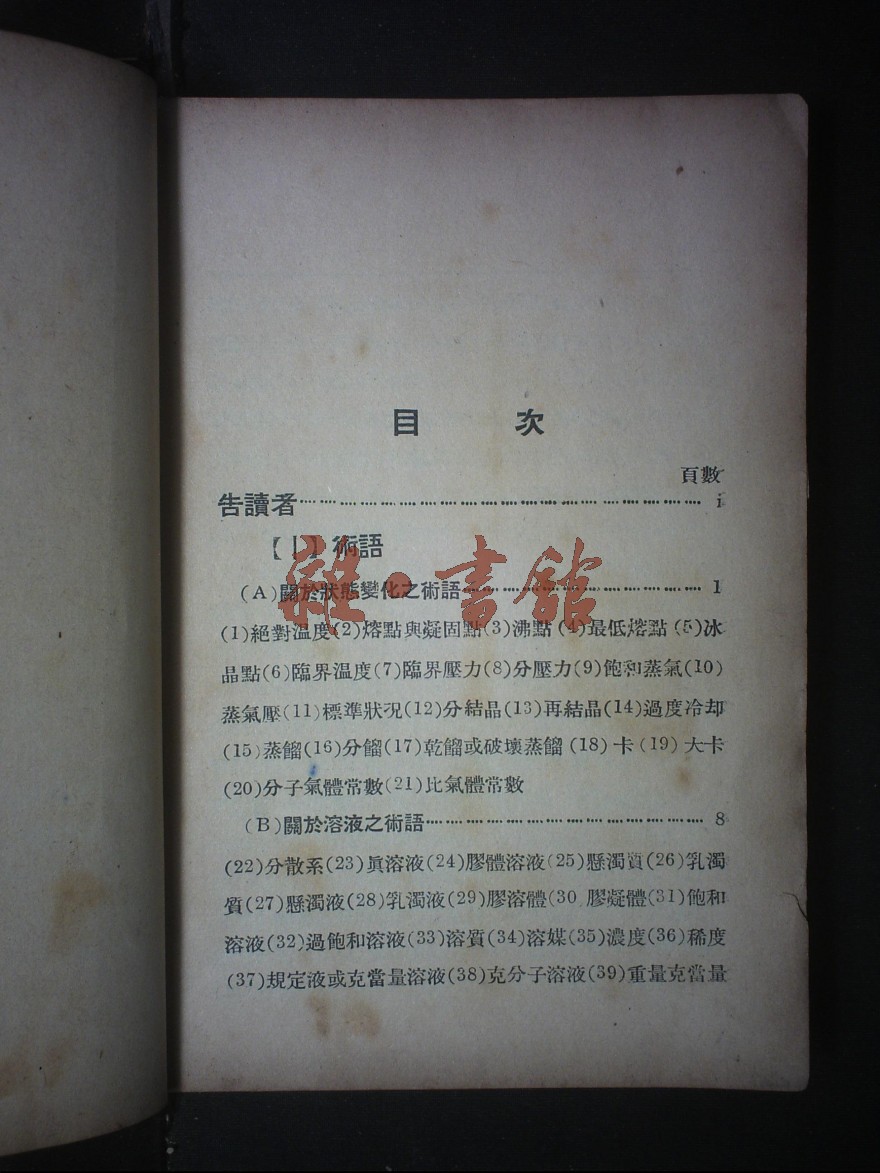 目 次
頁數
告讀者 ………………………………………… i
【I】術語
(A)關於狀態變化之術語 ………………………… 1
(1)絕對溫度(2)熔點與凝固點(3)沸點(4)最低熔點(5)冰
晶點(6)臨界溫度(7)臨界壓力(8)分壓力(9)飽和蒸氣(10)
蒸氣壓(11)標準狀況(12)分結晶(13)再結晶(14)過度冷却
(15)蒸餾(16)分餾(17)乾餾或破壞蒸餾(18)卡(19)大卡
(20)分子氣體常數(21)比氣體常數
(B)關於溶液之術語 ………………………… 8
(22)分散系(23)眞溶液(24)膠體溶液(25)懸濁質(26)乳濁
質(27)懸濁液(28)乳濁液(29)膠溶體(30 膠凝體(31)飽和
溶液(32)過飽和溶液(33)溶質(34)溶媒(35)濃度(36)稀度
(37)規定液或克當量溶液(38)克分子溶液(39)重量克當量
雜·書館